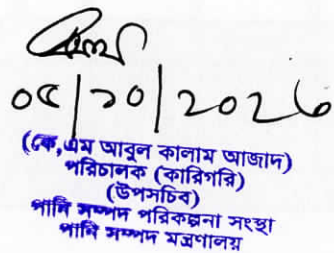 ০৫|১০|২০২৩
(কে,এম আবুল কালাম আজাদ)
পরিচালক (কারিগরি)
(উপসচিব)
পানি সম্পদ পরিকল্পনা সংস্থা
পানি সম্পদ মন্ত্রণালয়